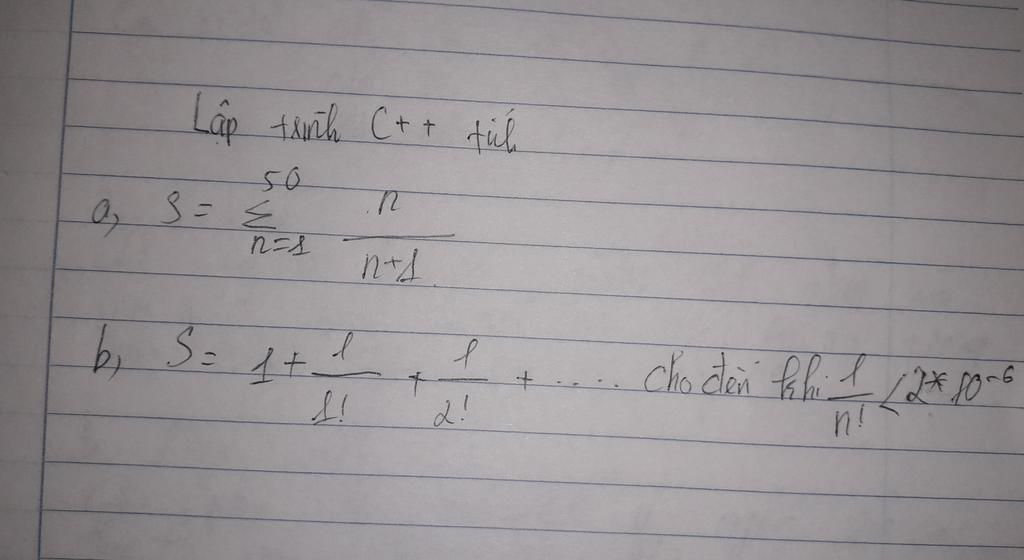 Lập trình C++ tính
a, S = 50 Σ n=1 n/n+1
b, S = 1 + 1/1! + 1/2! + .... cho đến khi 1/n! < 2*10^-6